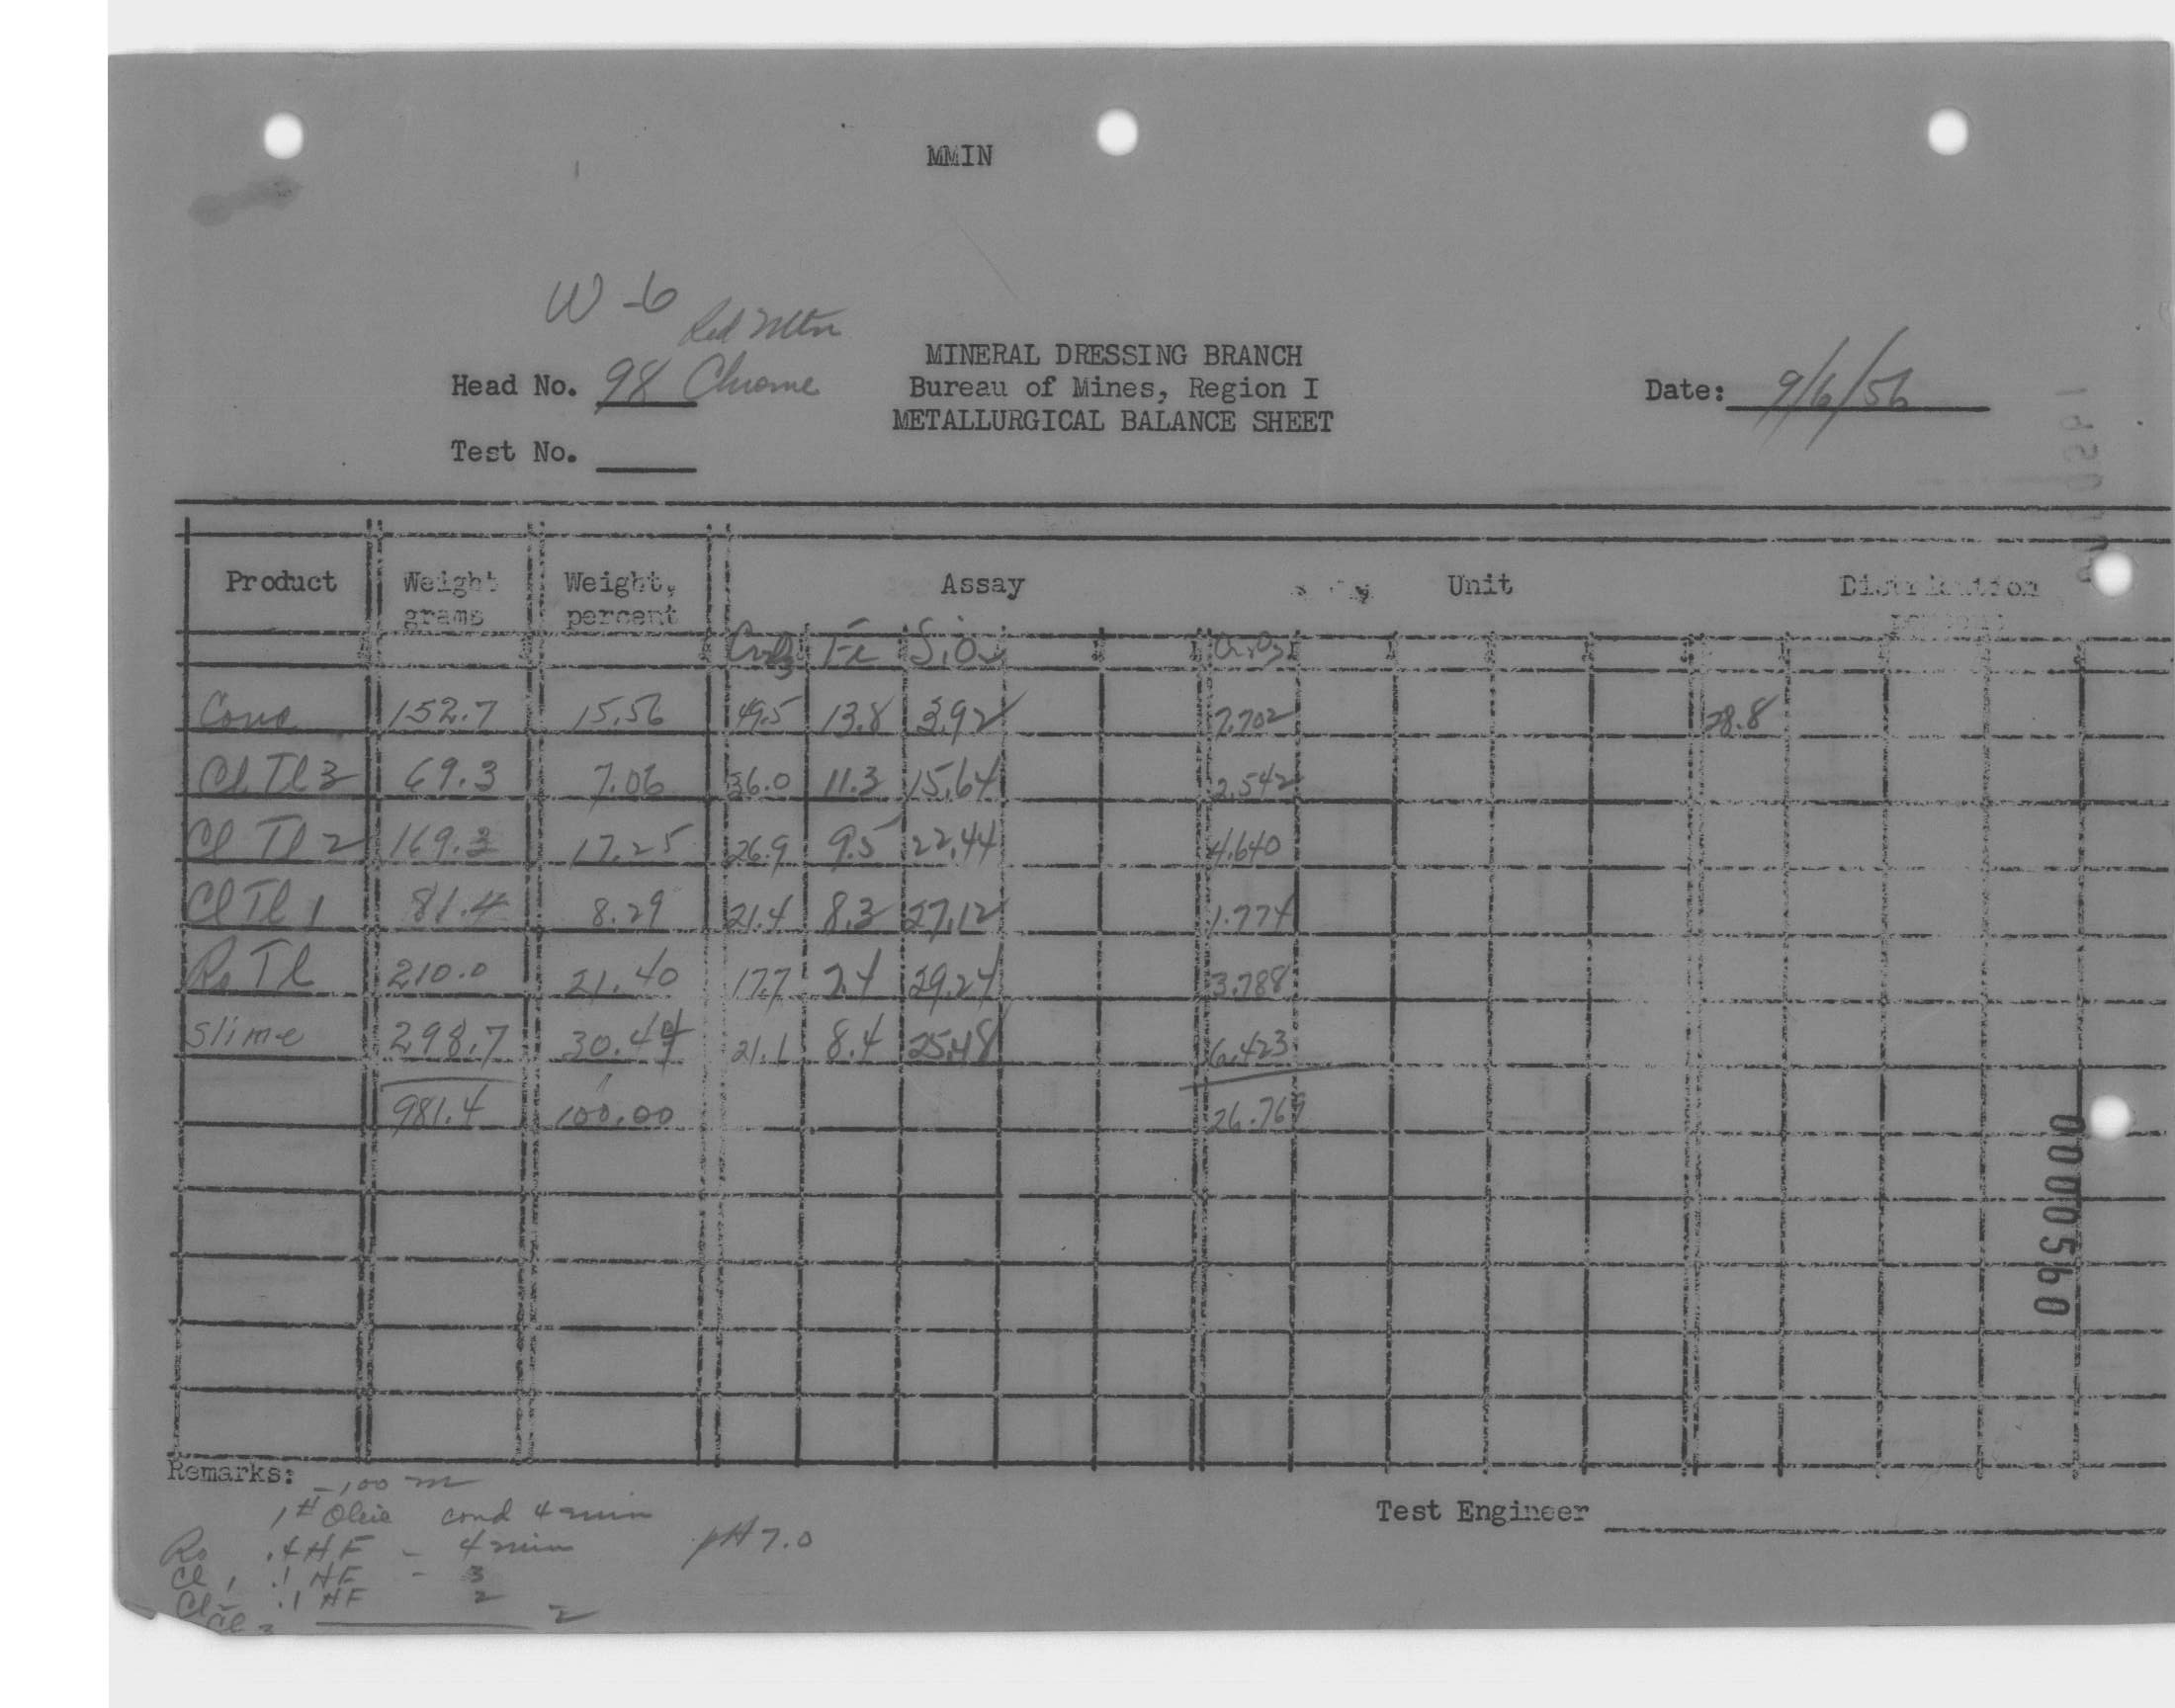 MMIN
W-6
Red Mtn
MINERAL DRESSING BRANCH
Head No. 98 Chrome
Bureau of Mines, Region I
Date: 9/6/56
METALLURGICAL BALANCE SHEET
Test No.
Product Weight grams Weight, percent Assay Unit Distribution
Cr2O3 Fe SiO2 Cr2O3
Conc 152.7 15.56 49.5 13.8 3.92 7.702 28.8
Cl Tl 3 69.3 7.06 36.0 11.3 15.64 2.542
Cl Tl 2 169.3 17.25 26.9 9.5 22.44 4.640
Cl Tl 1 81.4 8.29 21.4 8.3 27.12 1.774
Ro Tl 210.0 21.40 17.7 7.4 29.24 3.788
Slime 298.7 30.44 21.1 8.4 25.48 6.423
981.4 100.00 26.769
0000560
Remarks: -100 m
1# Oleic cond 4 min
Test Engineer
Ro .4 HF - 4 min pH 7.0
Cl 1 .1 HF - 3
Cl 2 .1 HF 2
Cl 3 2